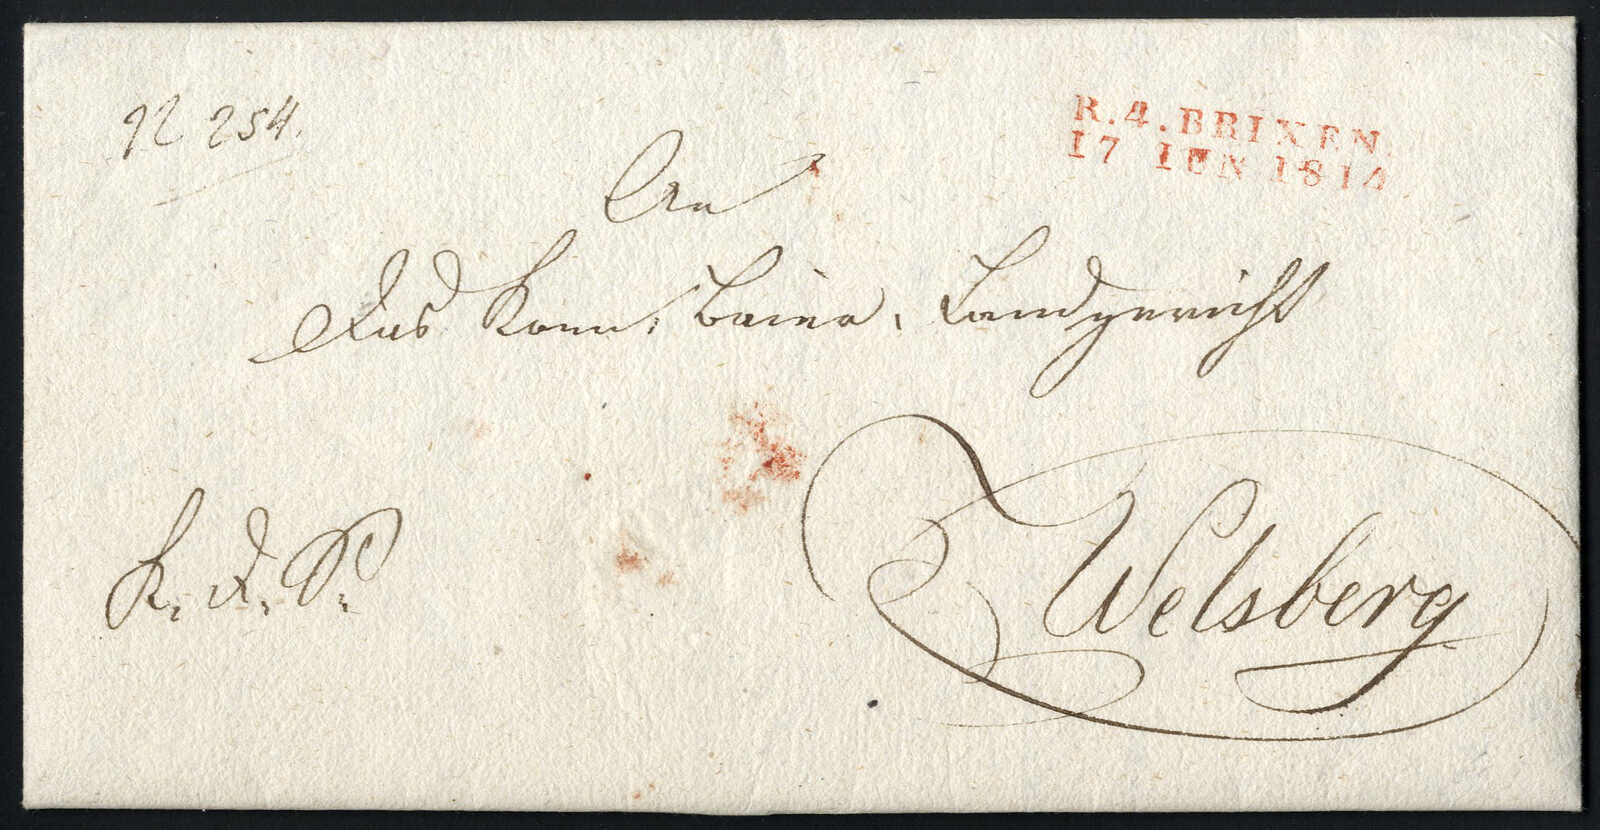 N 254.
R. 4. BRIXEN.
17 IUN 1814
An
Das Koen: Baier. Landgericht
K. D. S.
Welsberg